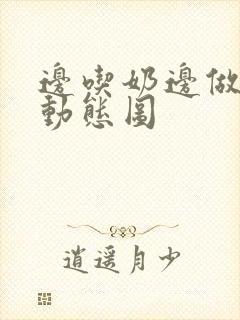 邊喫奶邊做
動態圖
逍遥月少